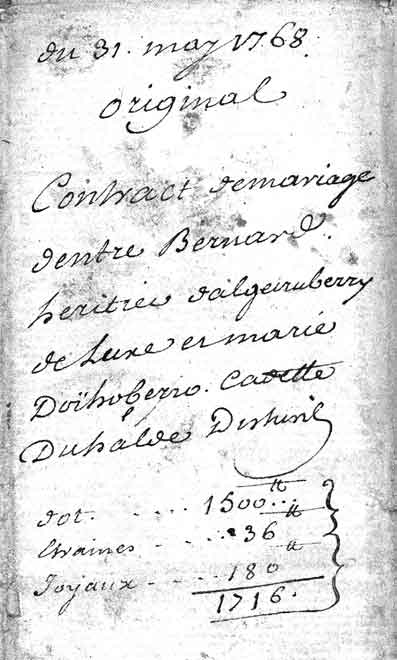 du 31. may 1768.
original
Contract demariage
dentre Bernard.
heritier dalgeiruberry
de Luxe et marie
Doihoberro. Cadette
Duhalde
dot. ..... 1500 tt...
Etraines - ... 36 tt
Joyaux - ... 180 tt
1716.